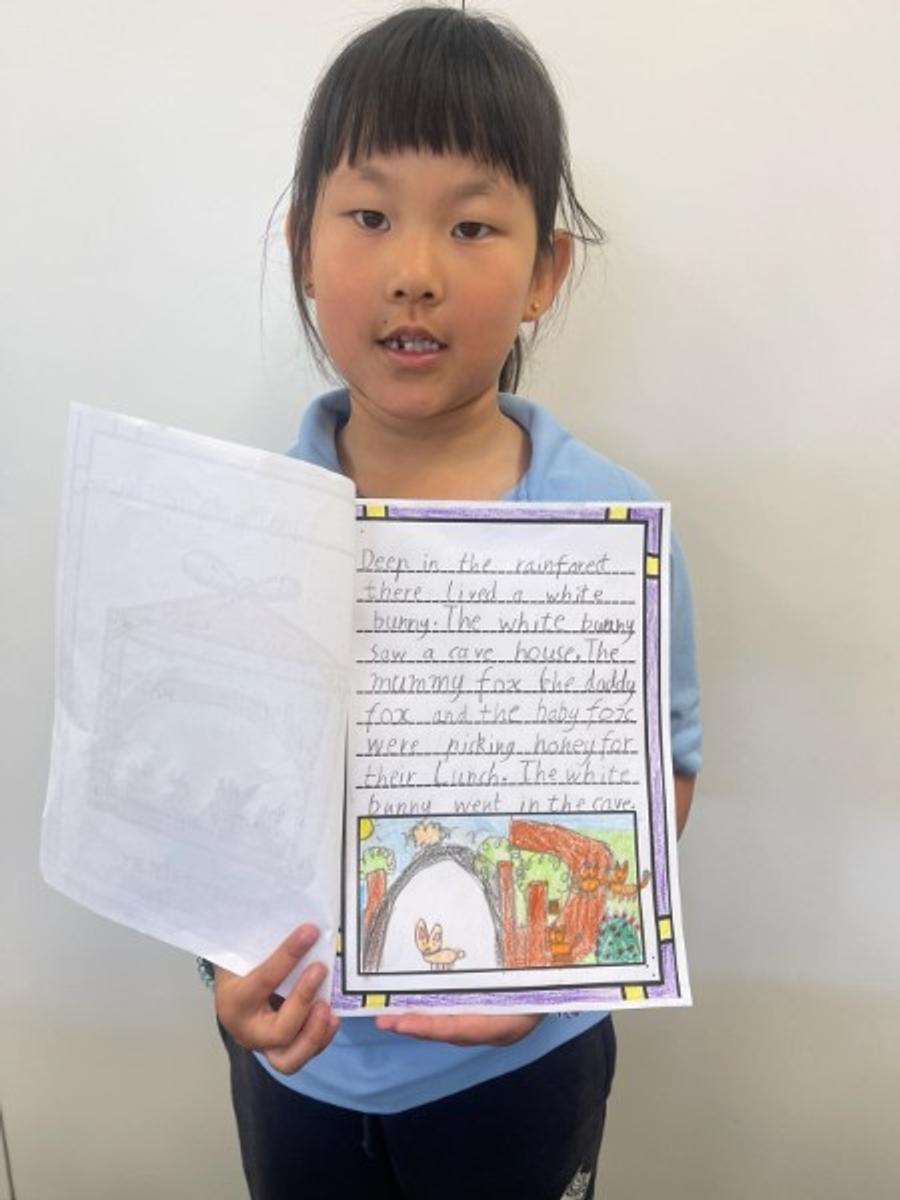 Deep in the rainforest
there lived a white
bunny. The white bunny
saw a cave house. The
mummy fox the daddy
fox and the baby fox
were picking honey for
their Lunch. The white
bunny went in the cave.